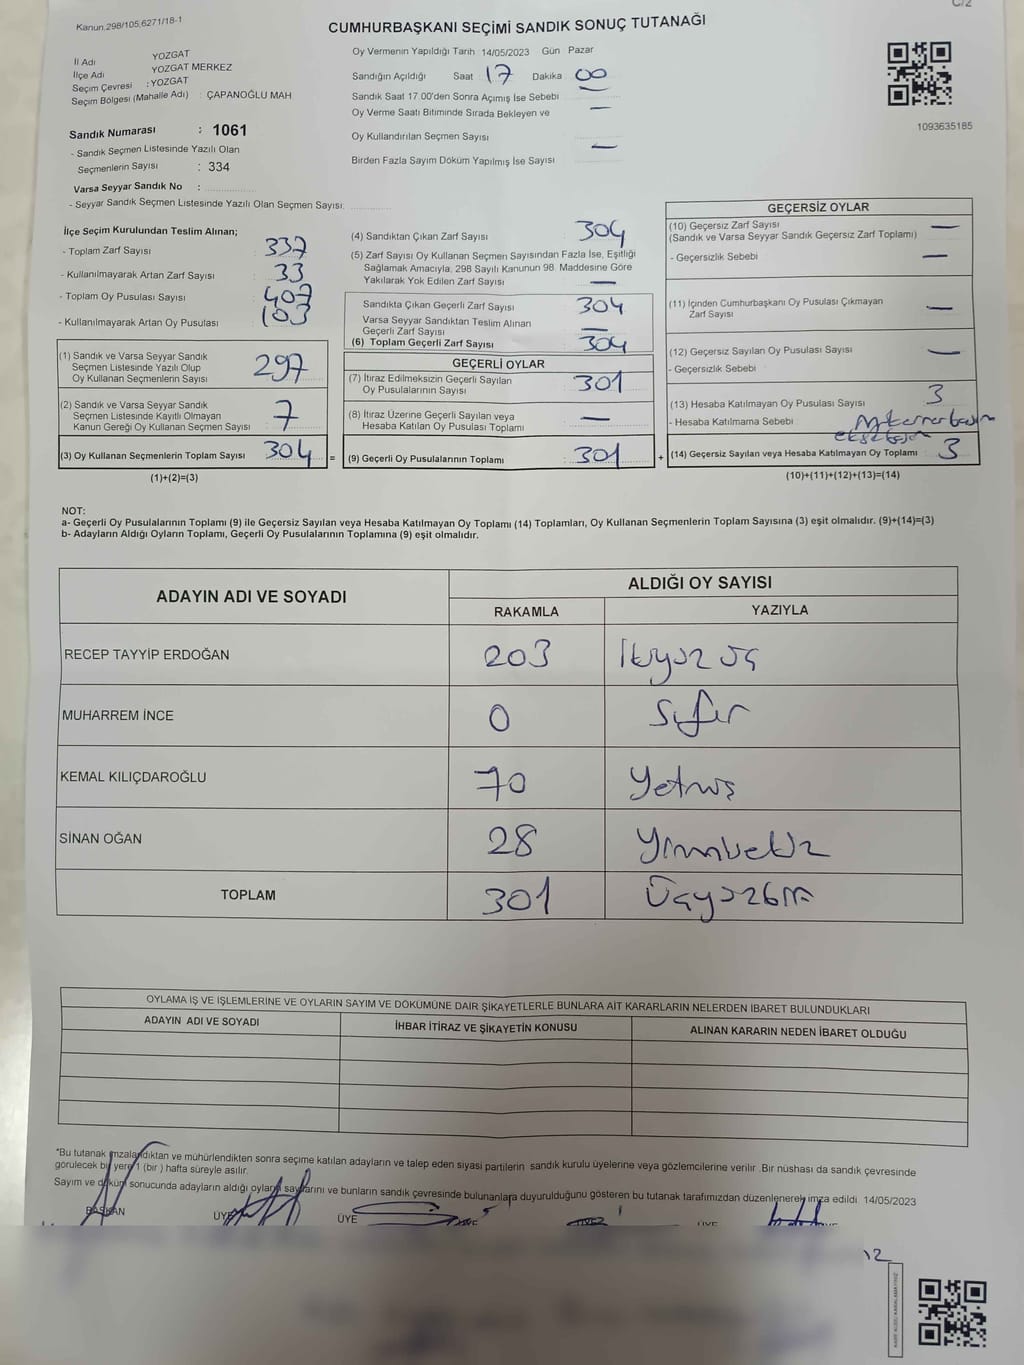 C/2
Kanun.298/105,6271/18-1
CUMHURBAŞKANI SEÇİMİ SANDIK SONUÇ TUTANAĞI
İl Adı YOZGAT
İlçe Adı YOZGAT MERKEZ
Seçim Çevresi : YOZGAT
Seçim Bölgesi (Mahalle Adı) : ÇAPANOĞLU MAH
Oy Vermenin Yapıldığı Tarih 14/05/2023 Gün Pazar
Sandığın Açıldığı Saat 17 Dakika 00
Sandık Saat 17.00'den Sonra Açımış İse Sebebi —
Oy Verme Saati Bitiminde Sırada Bekleyen ve —
Oy Kullandırılan Seçmen Sayısı
Birden Fazla Sayım Döküm Yapılmış İse Sayısı —
1093635185
Sandık Numarası : 1061
- Sandık Seçmen Listesinde Yazılı Olan
Seçmenlerin Sayısı : 334
Varsa Seyyar Sandık No :
- Seyyar Sandık Seçmen Listesinde Yazılı Olan Seçmen Sayısı:
İlçe Seçim Kurulundan Teslim Alınan;
- Toplam Zarf Sayısı : 337
- Kullanılmayarak Artan Zarf Sayısı : 33
- Toplam Oy Pusulası Sayısı : 407
- Kullanılmayarak Artan Oy Pusulası : 103
(1) Sandık ve Varsa Seyyar Sandık
Seçmen Listesinde Yazılı Olup
Oy Kullanan Seçmenlerin Sayısı : 297
(2) Sandık ve Varsa Seyyar Sandık
Seçmen Listesinde Kayıtlı Olmayan
Kanun Gereği Oy Kullanan Seçmen Sayısı : 7
(3) Oy Kullanan Seçmenlerin Toplam Sayısı : 304 =
(1)+(2)=(3)
(4) Sandıktan Çıkan Zarf Sayısı : 304
(5) Zarf Sayısı Oy Kullanan Seçmen Sayısından Fazla İse, Eşitliği
Sağlamak Amacıyla, 298 Sayılı Kanunun 98. Maddesine Göre
Yakılarak Yok Edilen Zarf Sayısı —
Sandıkta Çıkan Geçerli Zarf Sayısı : 304
Varsa Seyyar Sandıktan Teslim Alınan
Geçerli Zarf Sayısı —
(6) Toplam Geçerli Zarf Sayısı : 304
GEÇERLİ OYLAR
(7) İtiraz Edilmeksizin Geçerli Sayılan
Oy Pusulalarının Sayısı : 301
(8) İtiraz Üzerine Geçerli Sayılan veya
Hesaba Katılan Oy Pusulası Toplamı : —
(9) Geçerli Oy Pusulalarının Toplamı : 301 +
GEÇERSİZ OYLAR
(10) Geçersiz Zarf Sayısı —
(Sandık ve Varsa Seyyar Sandık Geçersiz Zarf Toplamı)
- Geçersizlik Sebebi —
(11) İçinden Cumhurbaşkanı Oy Pusulası Çıkmayan
Zarf Sayısı —
(12) Geçersiz Sayılan Oy Pusulası Sayısı —
- Geçersizlik Sebebi
(13) Hesaba Katılmayan Oy Pusulası Sayısı 3
- Hesaba Katılmama Sebebi
(14) Geçersiz Sayılan veya Hesaba Katılmayan Oy Toplamı : 3
(10)+(11)+(12)+(13)=(14)
NOT:
a- Geçerli Oy Pusulalarının Toplamı (9) ile Geçersiz Sayılan veya Hesaba Katılmayan Oy Toplamı (14) Toplamları, Oy Kullanan Seçmenlerin Toplam Sayısına (3) eşit olmalıdır. (9)+(14)=(3)
b- Adayların Aldığı Oyların Toplamı, Geçerli Oy Pusulalarının Toplamına (9) eşit olmalıdır.
ADAYIN ADI VE SOYADI ALDIĞI OY SAYISI
RAKAMLA YAZIYLA
RECEP TAYYİP ERDOĞAN 203 İkiyüz üç
MUHARREM İNCE 0 Sıfır
KEMAL KILIÇDAROĞLU 70 Yetmiş
SİNAN OĞAN 28 Yirmisekiz
TOPLAM 301 Üçyüzbir
OYLAMA İŞ VE İŞLEMLERİNE VE OYLARIN SAYIM VE DÖKÜMÜNE DAİR ŞİKAYETLERLE BUNLARA AİT KARARLARIN NELERDEN İBARET BULUNDUKLARI
ADAYIN ADI VE SOYADI İHBAR İTİRAZ VE ŞİKAYETİN KONUSU ALINAN KARARIN NEDEN İBARET OLDUĞU
*Bu tutanak imzalandıktan ve mühürlendikten sonra seçime katılan adayların ve talep eden siyasi partilerin sandık kurulu üyelerine veya gözlemcilerine verilir .Bir nüshası da sandık çevresinde
görülecek bir yere 1 (bir ) hafta süreyle asılır.
Sayım ve döküm sonucunda adayların aldığı oyların sayılarını ve bunların sandık çevresinde bulunanlara duyurulduğunu gösteren bu tutanak tarafımızdan düzenlenerek imza edildi 14/05/2023
BAŞKAN ÜYE ÜYE ÜYE ÜYE ÜYE